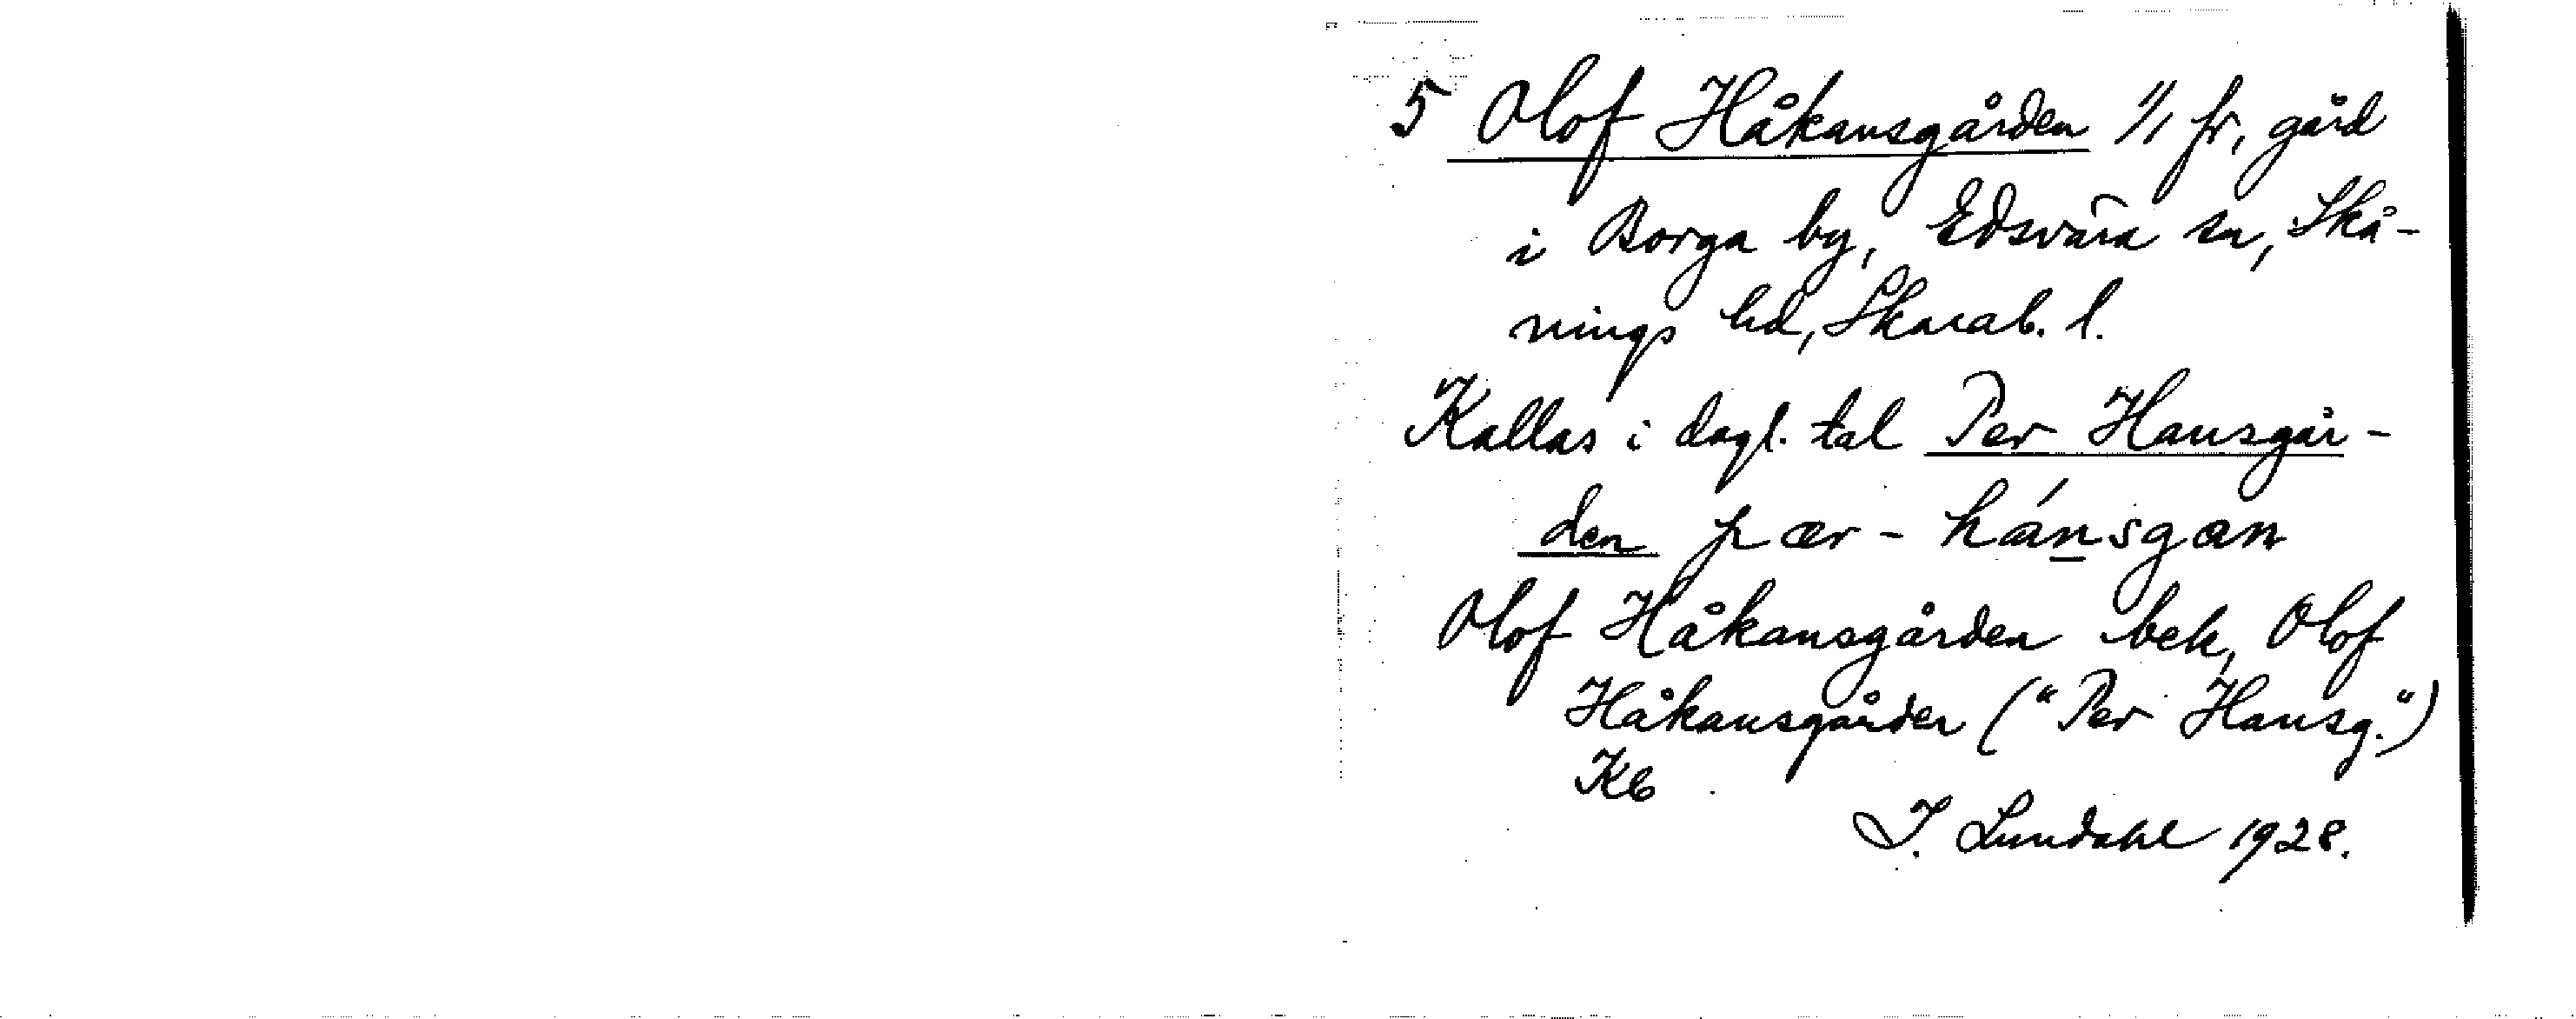 5 Olof Håkansgården 1/1 fr, gård
i Borga by, Edsvära sn, Skå-
nings hd, Skarab. l.
Kallas i dagl. tal Per Hansgår-
den pær-hánsgan
Olof Håkansgården bek, Olof
Håkansgården ("Per Hansg.")
Kb
I. Lundahl 1928.